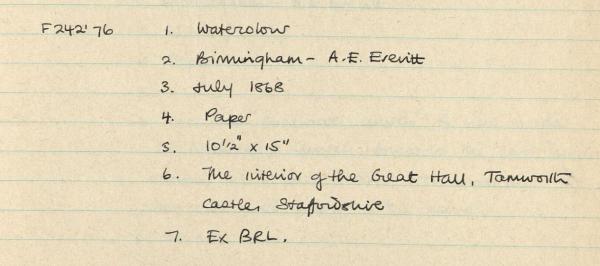 F242'76 1. Watercolour
2. Birmingham - A.E. Everitt
3. July 1868
4. Paper
5. 10 1/2" x 15"
6. The interior of the Great Hall, Tamworth
Castle, Staffordshire
7. Ex BRL.